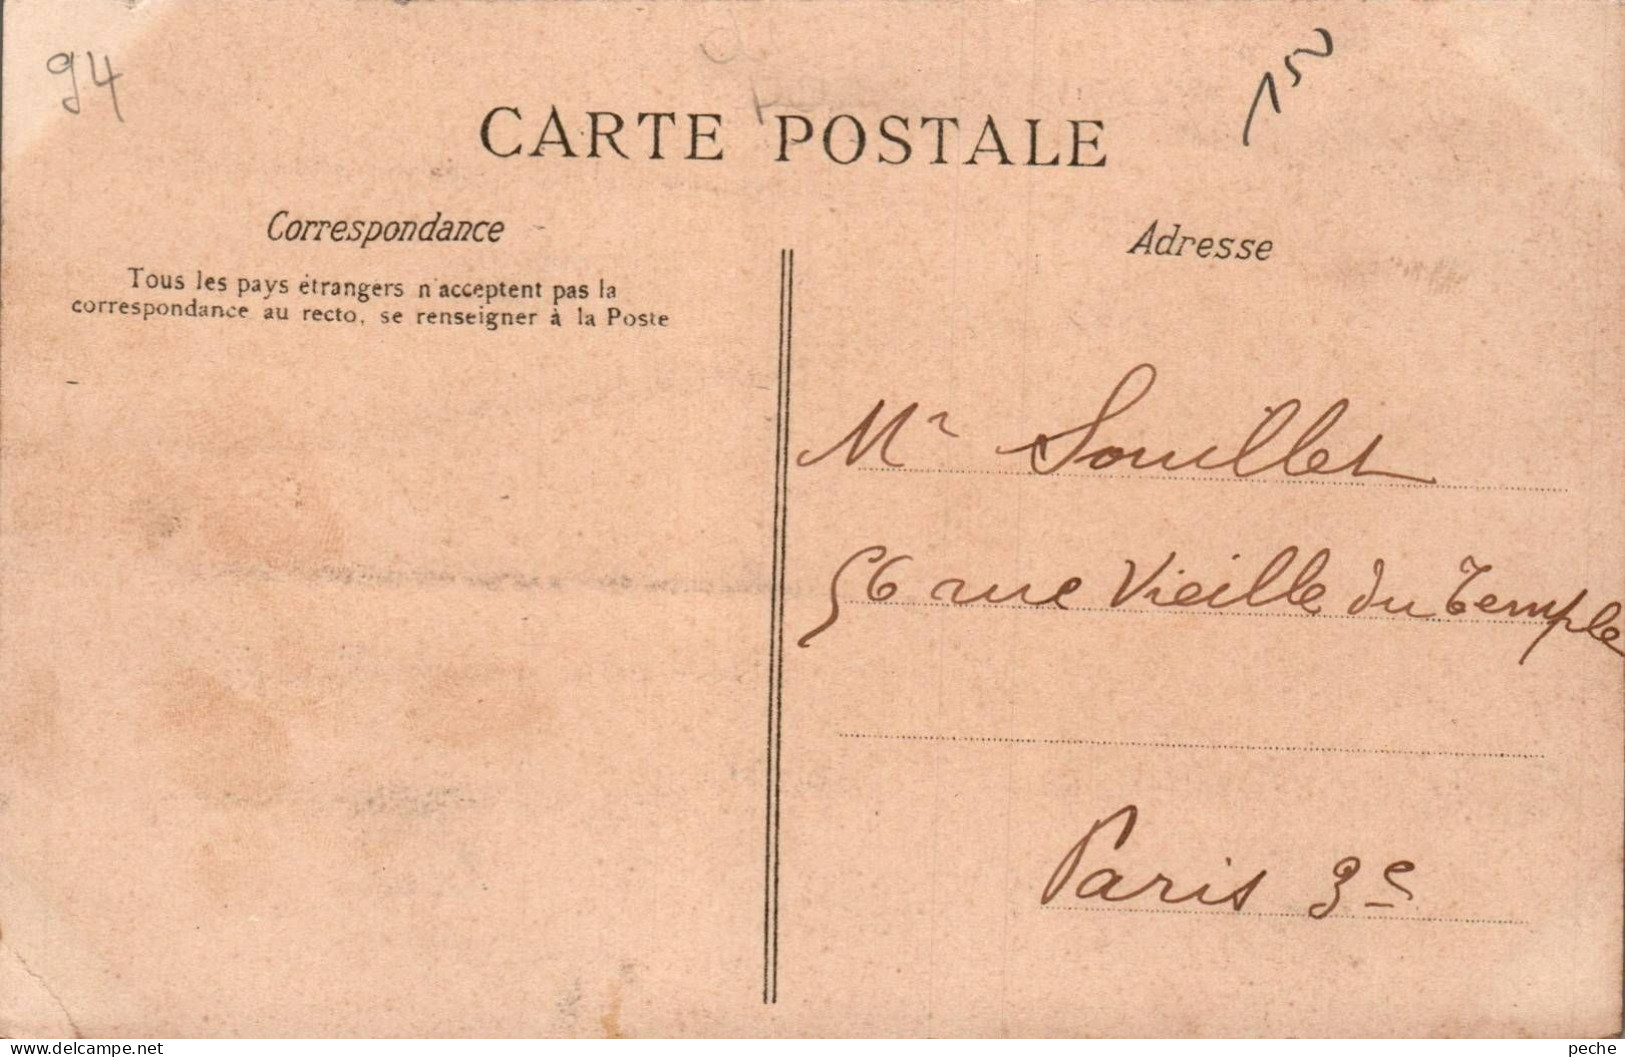 94
150
CARTE POSTALE
Correspondance
Adresse
Tous les pays étrangers n'acceptent pas la
correspondance au recto, se renseigner à la Poste
Mr Souillet
56 rue Vieille du Temple
Paris 3e
peche